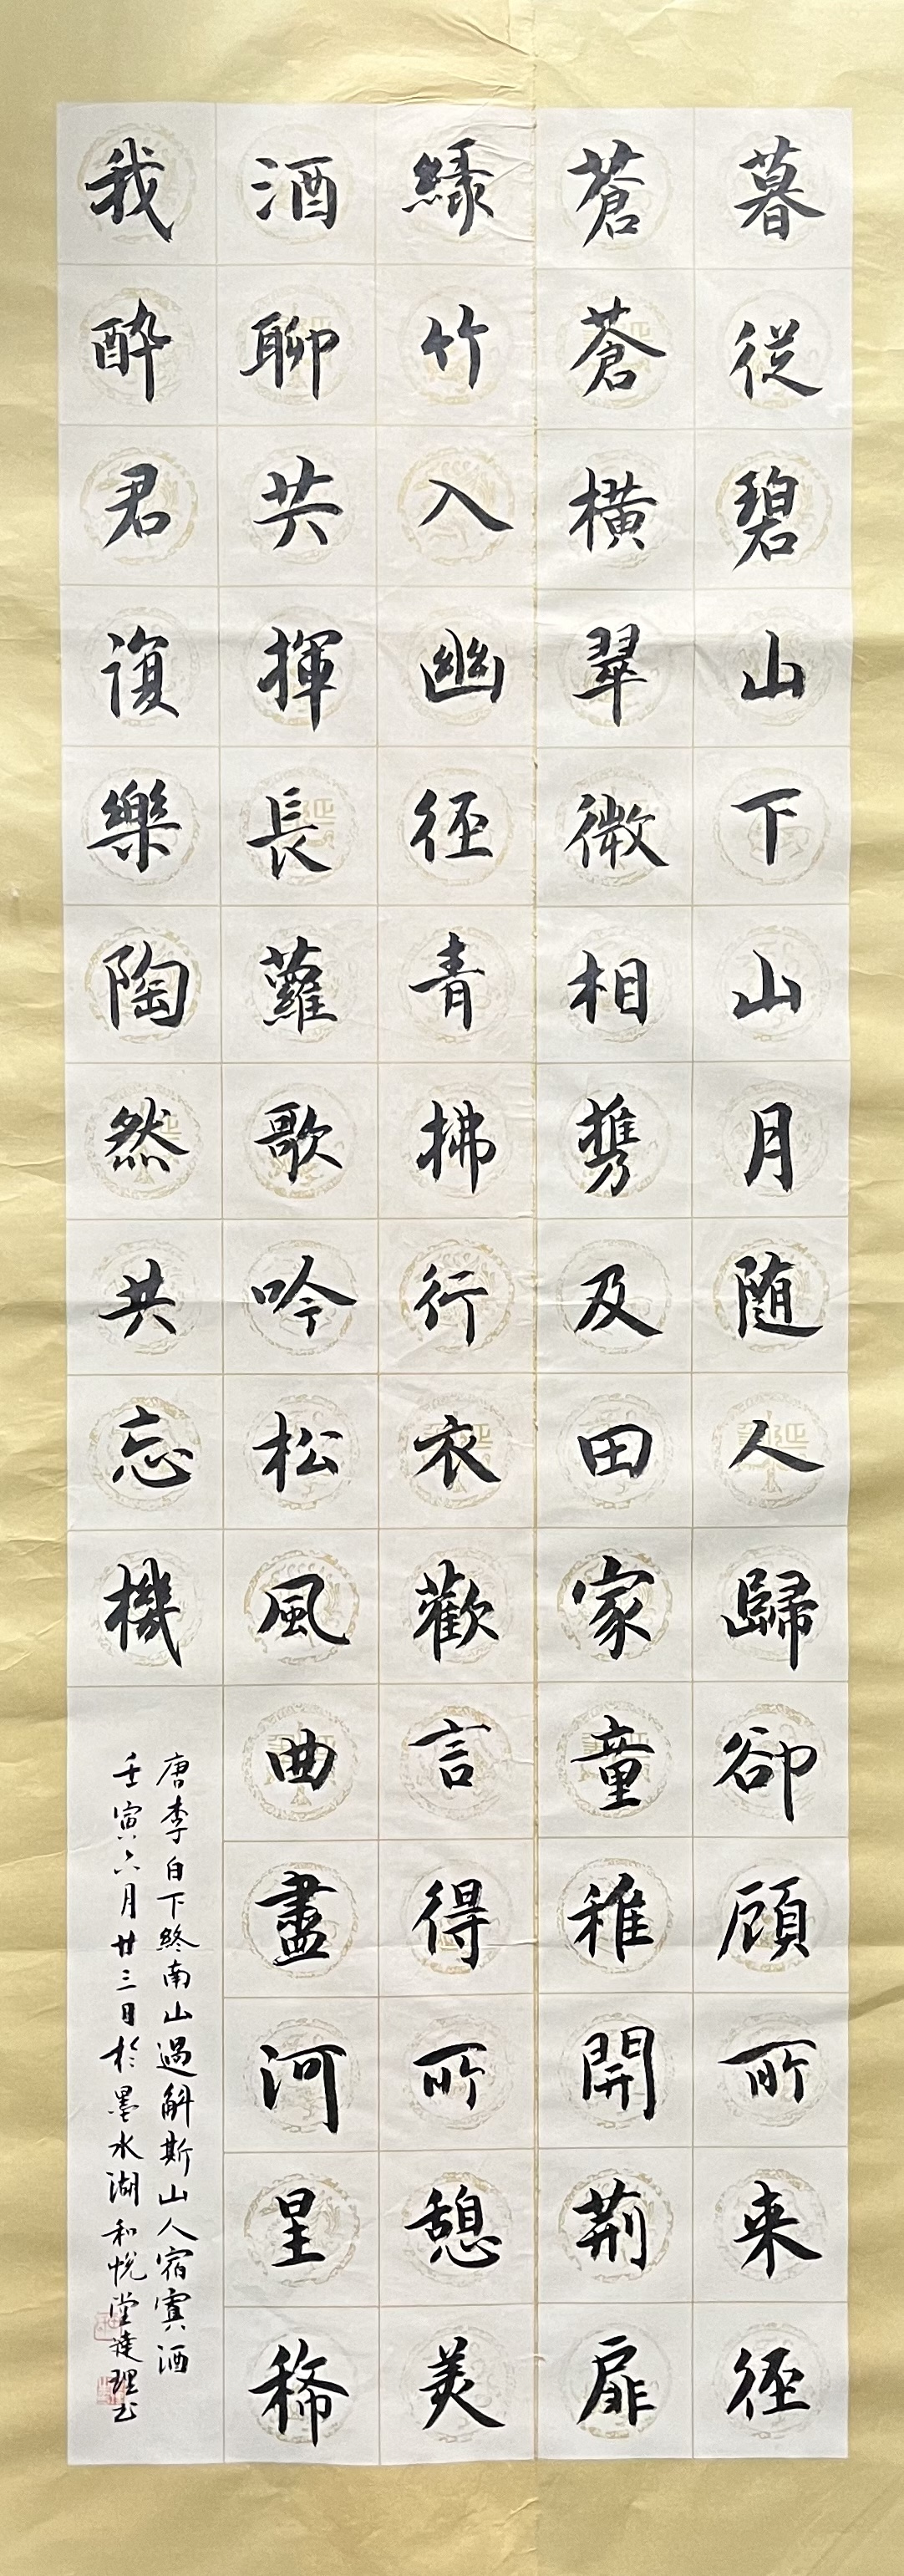 暮従碧山下山月随人歸卻顧所来徑
蒼蒼橫翠微相携及田家童稚開荊扉
綠竹入幽徑青拂行衣歡言得所憩美
酒聊共揮長蘿歌吟松風曲盡河星稀
我醉君復樂陶然共忘機
唐李白下終南山過斛斯山人宿寘酒
壬寅六月廿三日於墨水湖和悅堂達理书